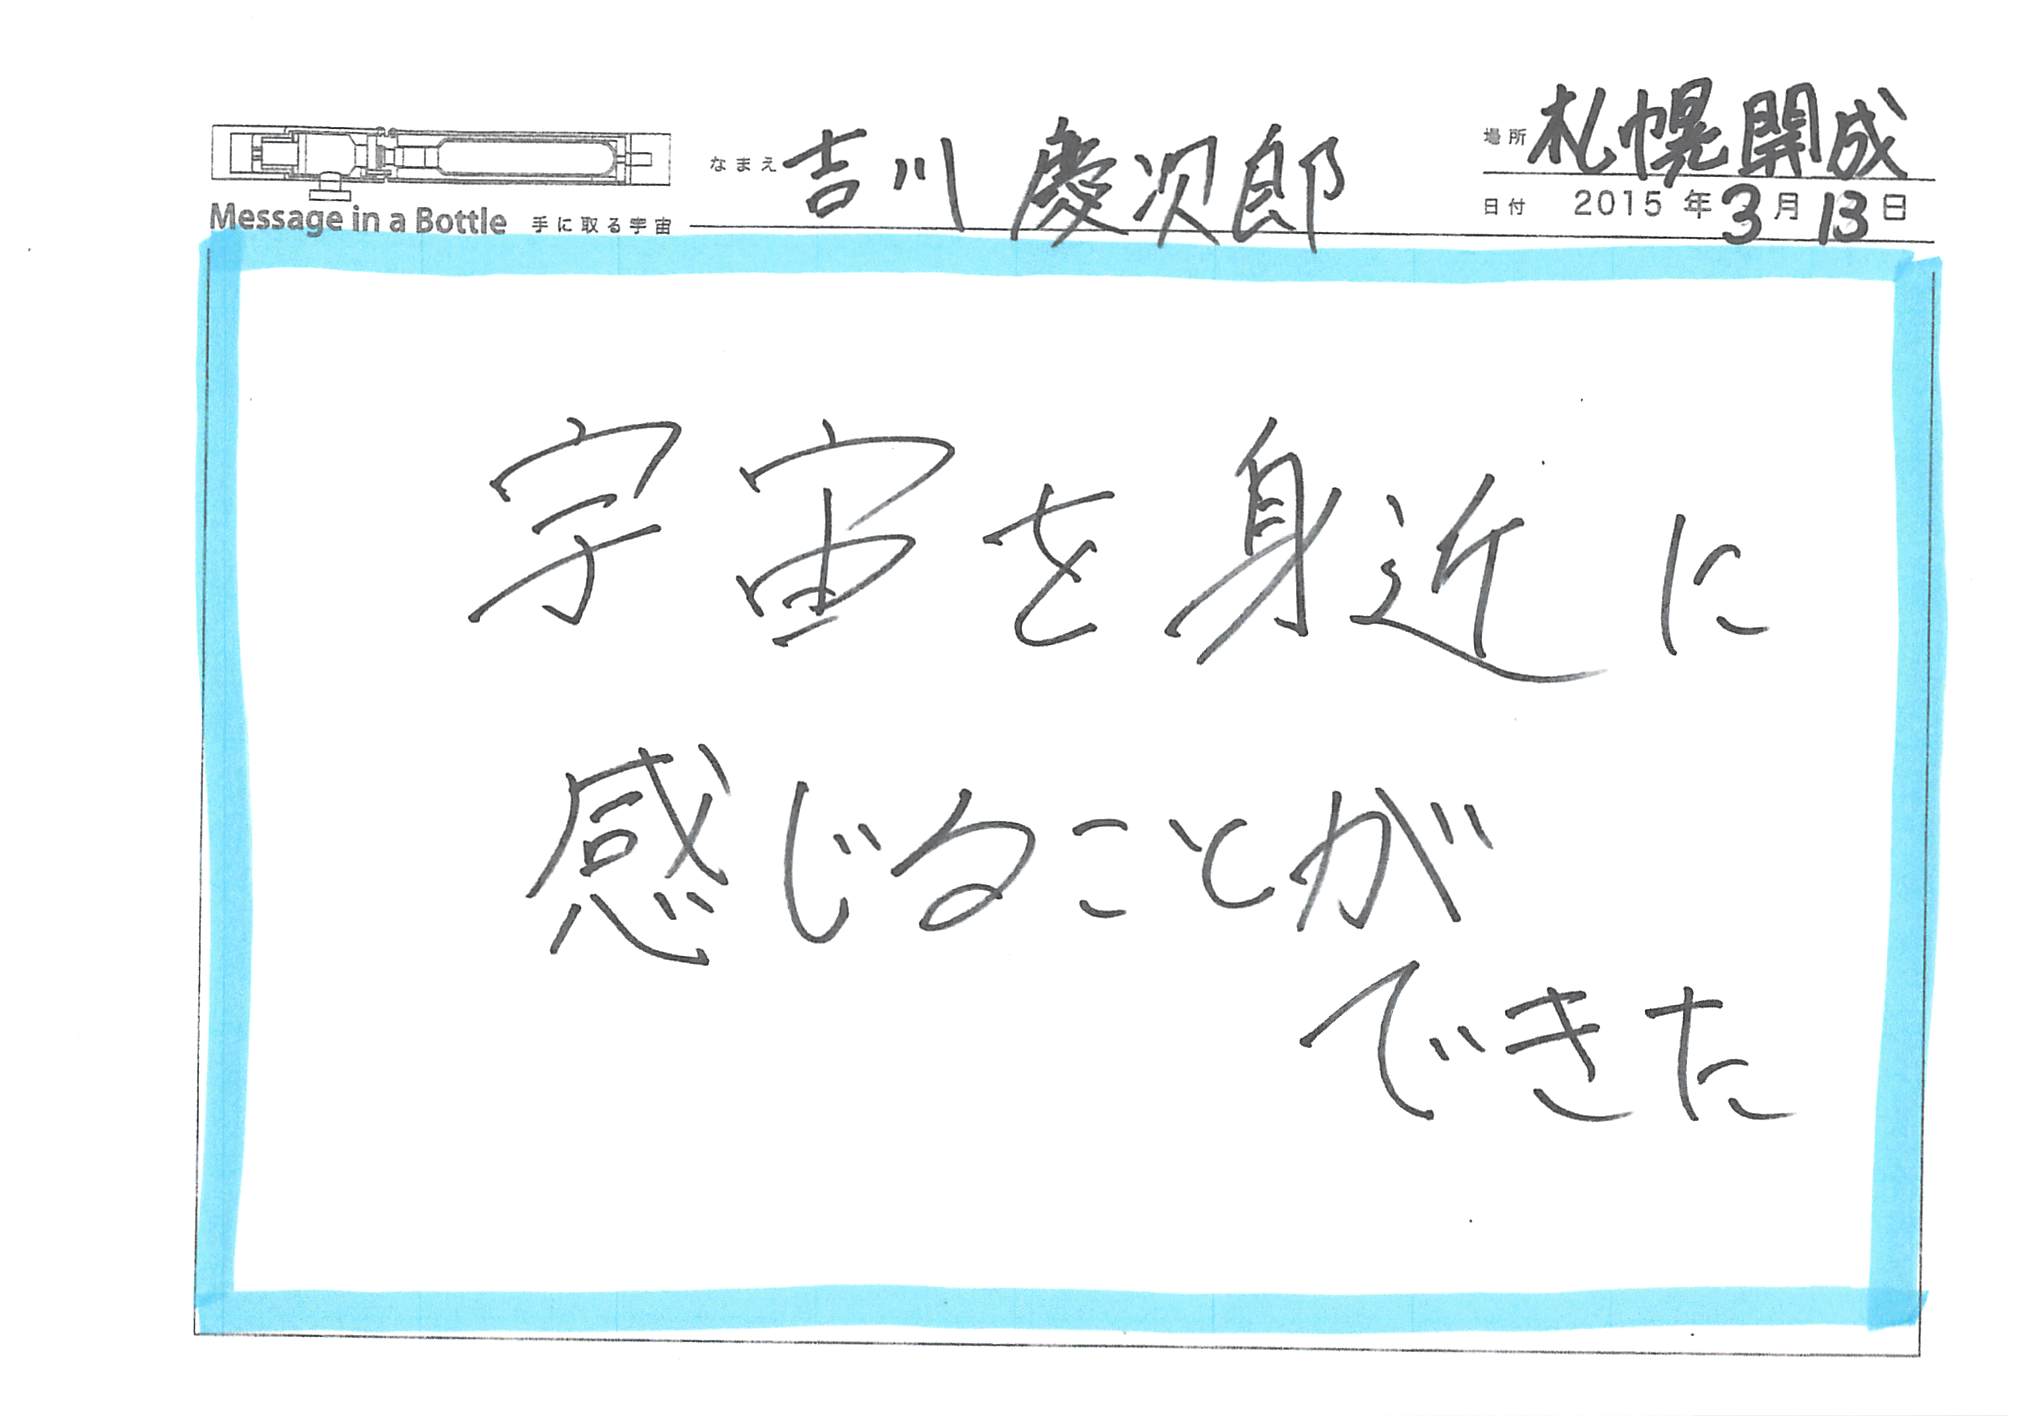 Message in a Bottle 手に取る宇宙
なまえ 吉川 慶次郎
場所 札幌開成
日付 2015年3月13日
宇宙を身近に
感じることが
できた